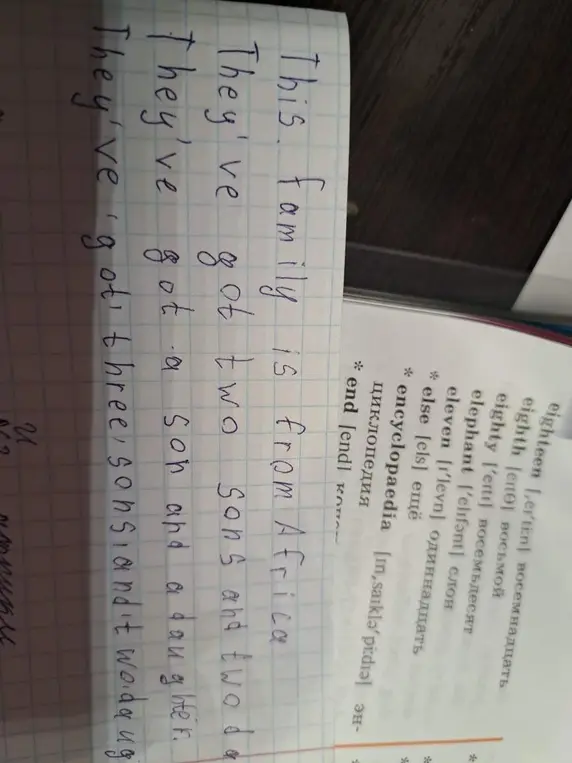 This family is from Africa
They've got two sons and two da
They've got a son and a daughter.
They've got three sons and two daug
eighteen [ˌeɪˈtiːn] восемнадцать
eighth [eɪtθ] восьмой
eighty [ˈeɪtɪ] восемьдесят
elephant [ˈelɪfənt] слон
eleven [ɪˈlevn] одиннадцать
* else [els] ещё
* encyclopaedia [ɪnˌsaɪkləˈpiːdɪə] эн-
циклопедия
* end [end]